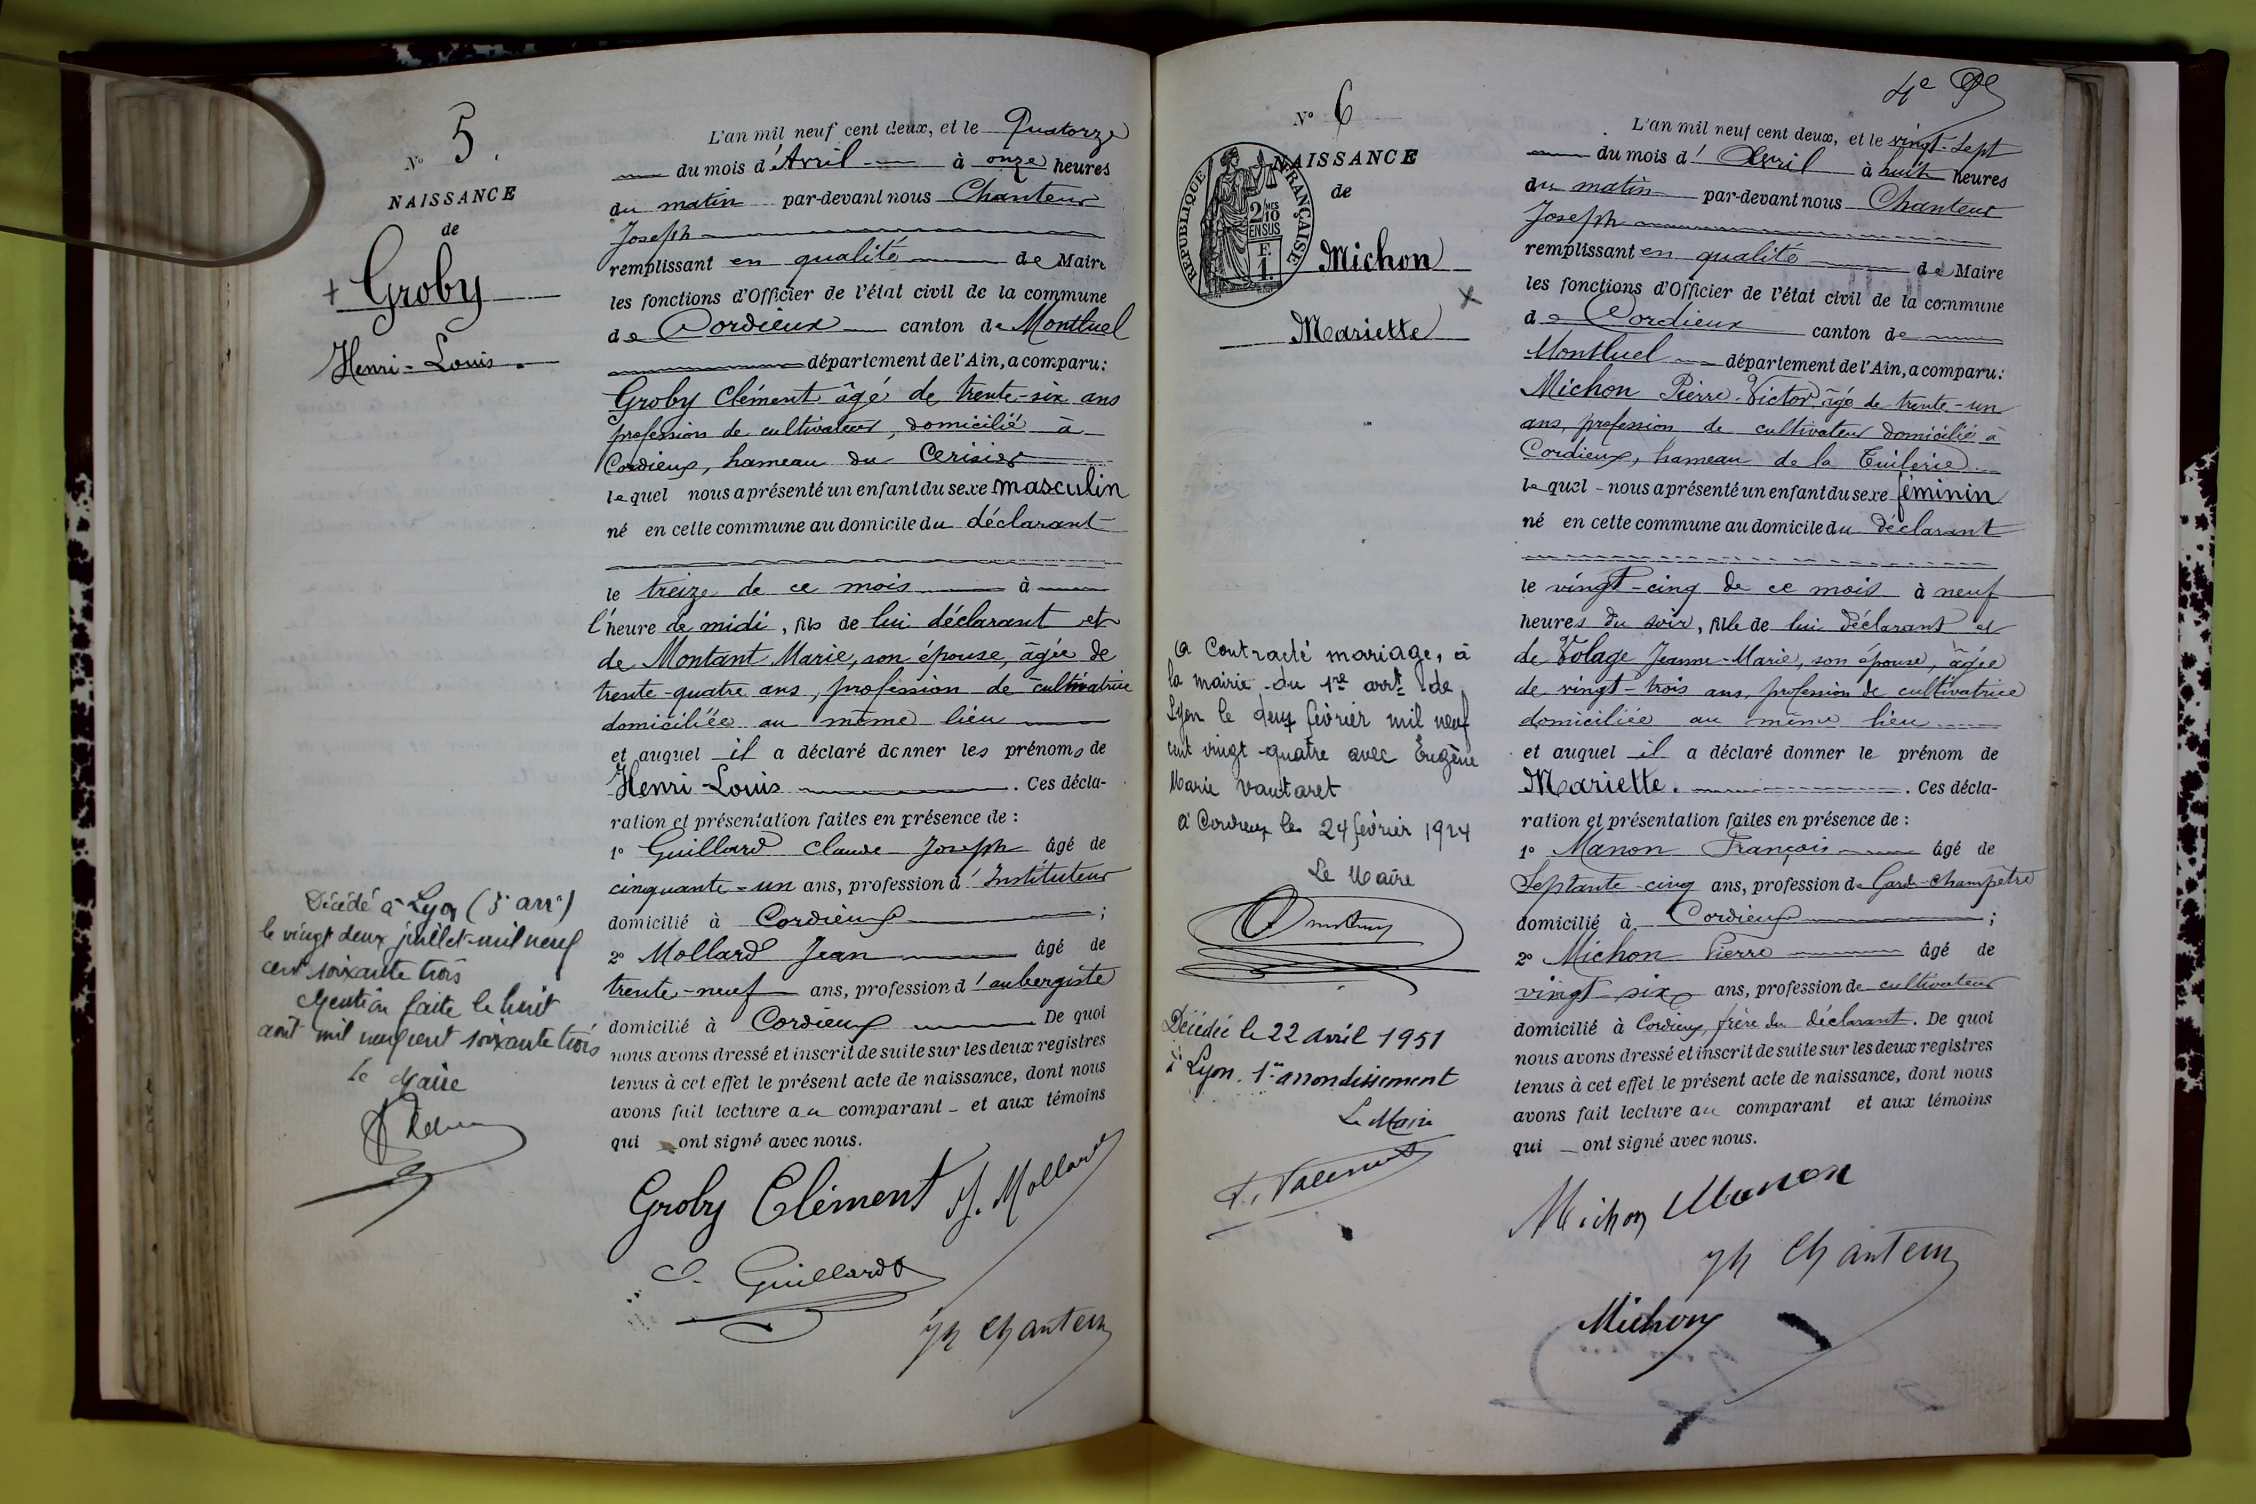 N° 5.
NAISSANCE
de
+ Groby
Henri-Louis.
Décédé à Lyon (5e arrt)
le vingt deux juillet mil neuf
cent soixante trois
Mention faite le huit
août mil neuf cent soixante trois
Le Maire
L'an mil neuf cent deux, et le Quatorze
du mois d'Avril à onze heures
du matin par-devant nous Chanteur
Joseph
remplissant en qualité de Maire
les fonctions d'Officier de l'état civil de la commune
de Cordieux canton de Montluel
département de l'Ain, a comparu:
Groby Clément âgé de trente-six ans
profession de cultivateur, domicilié à
Cordieux, hameau du Cerisier
lequel nous a présenté un enfant du sexe masculin
né en cette commune au domicile du déclarant
le treize de ce mois à
l'heure de midi, fils de lui déclarant et
de Montant Marie, son épouse, âgée de
trente-quatre ans, profession de cultivatrice
domiciliée au même lieu
et auquel il a déclaré donner les prénoms de
Henri-Louis. Ces décla-
ration et présentation faites en présence de :
1° Guillard Claude Joseph âgé de
cinquante-un ans, profession d'Instituteur
domicilié à Cordieux ;
2° Mollard Jean âgé de
trente-neuf ans, profession d'aubergiste
domicilié à Cordieux De quoi
nous avons dressé et inscrit de suite sur les deux registres
tenus à cet effet le présent acte de naissance, dont nous
avons fait lecture au comparant et aux témoins
qui ont signé avec nous.
Groby Clément J. Mollard
C. Guillard
Jh Chanteur
N° 6
NAISSANCE
de
REPUBLIQUE FRANÇAISE
2/10 EN SUS
F.
1.
Michon
x
Mariette
A contracté mariage, à
la mairie du 1er arrt de
Lyon le deux février mil neuf
cent vingt-quatre avec Eugène
Marie Vautaret
à Cordieux le 24 février 1924
Le Maire
Décédée le 22 avril 1951
à Lyon. 1er arrondissement
Le Maire
4e
L'an mil neuf cent deux, et le vingt-sept
du mois d'Avril à huit heures
du matin par-devant nous Chanteur
Joseph
remplissant en qualité de Maire
les fonctions d'Officier de l'état civil de la commune
de Cordieux canton de
Montluel département de l'Ain, a comparu:
Michon Pierre-Victor, âgé de trente-un
ans, profession de cultivateur domicilié à
Cordieux, hameau de la Tuilerie
lequel nous a présenté un enfant du sexe féminin
né en cette commune au domicile du déclarant
le vingt-cinq de ce mois à neuf
heures du soir, fille de lui déclarant et
de Volage Jeanne-Marie, son épouse, âgée
de vingt-trois ans, profession de cultivatrice
domiciliée au même lieu
et auquel il a déclaré donner le prénom de
Mariette. Ces décla-
ration et présentation faites en présence de :
1° Manon François âgé de
Septante-cinq ans, profession de Garde-champêtre
domicilié à Cordieux ;
2° Michon Pierre âgé de
vingt-six ans, profession de cultivateur
domicilié à Cordieux, frère du déclarant. De quoi
nous avons dressé et inscrit de suite sur les deux registres
tenus à cet effet le présent acte de naissance, dont nous
avons fait lecture au comparant et aux témoins
qui ont signé avec nous.
Michon Manon
Jh Chanteur
Michon